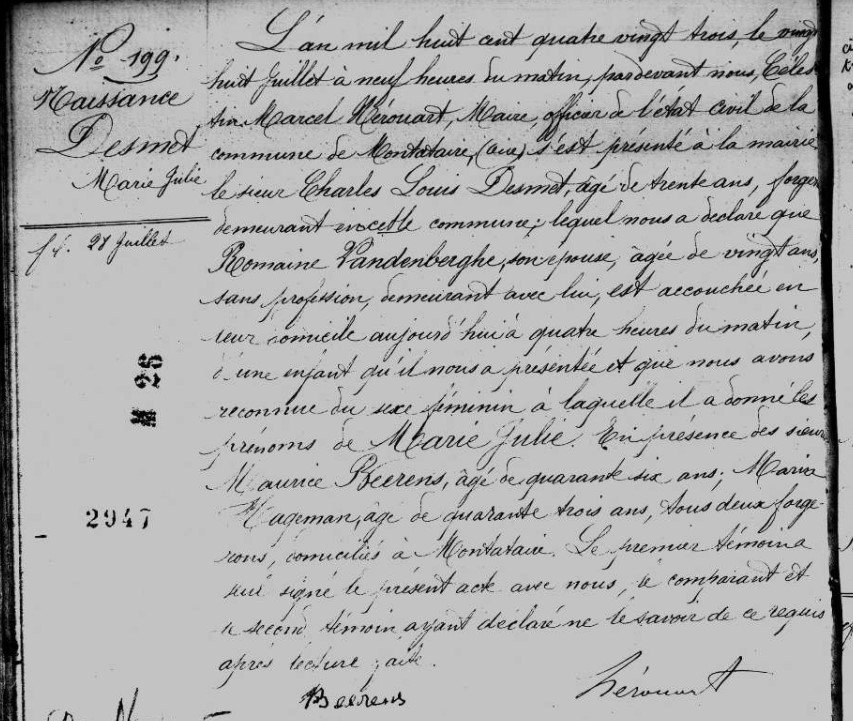 No 199.
Naissance
Desmet
Marie Julie
f.f. 28 Juillet
26
2947
L'an mil huit cent quatre vingt trois, le vingt
huit Juillet à neuf heures du matin, pardevant nous, Céles
tin Marcel Hérouart, Maire, officier de l'état civil de la
commune de Montataire, s'est présenté à la mairie
le sieur Charles Louis Desmet, âgé de trente ans, forge
demeurant en cette commune; lequel nous a déclaré que
Romaine Vandenberghe, son épouse, âgée de vingt ans,
sans profession, demeurant avec lui, est accouchée en
leur domicile aujourd'hui à quatre heures du matin,
d'une enfant qu'il nous a présentée et que nous avons
reconnue du sexe féminin à laquelle il a donné les
prénoms de Marie Julie. En présence des sieurs
Maurice Beerens, âgé de quarante six ans;
Hageman, âgé de quarante trois ans, tous deux forge-
rons, domiciliés à Montataire. Le premier témoin a
seul signé le présent acte avec nous, le comparant et
le second témoin ayant déclaré ne le savoir de ce requis
après lecture faite.
Beerens
Hérouart